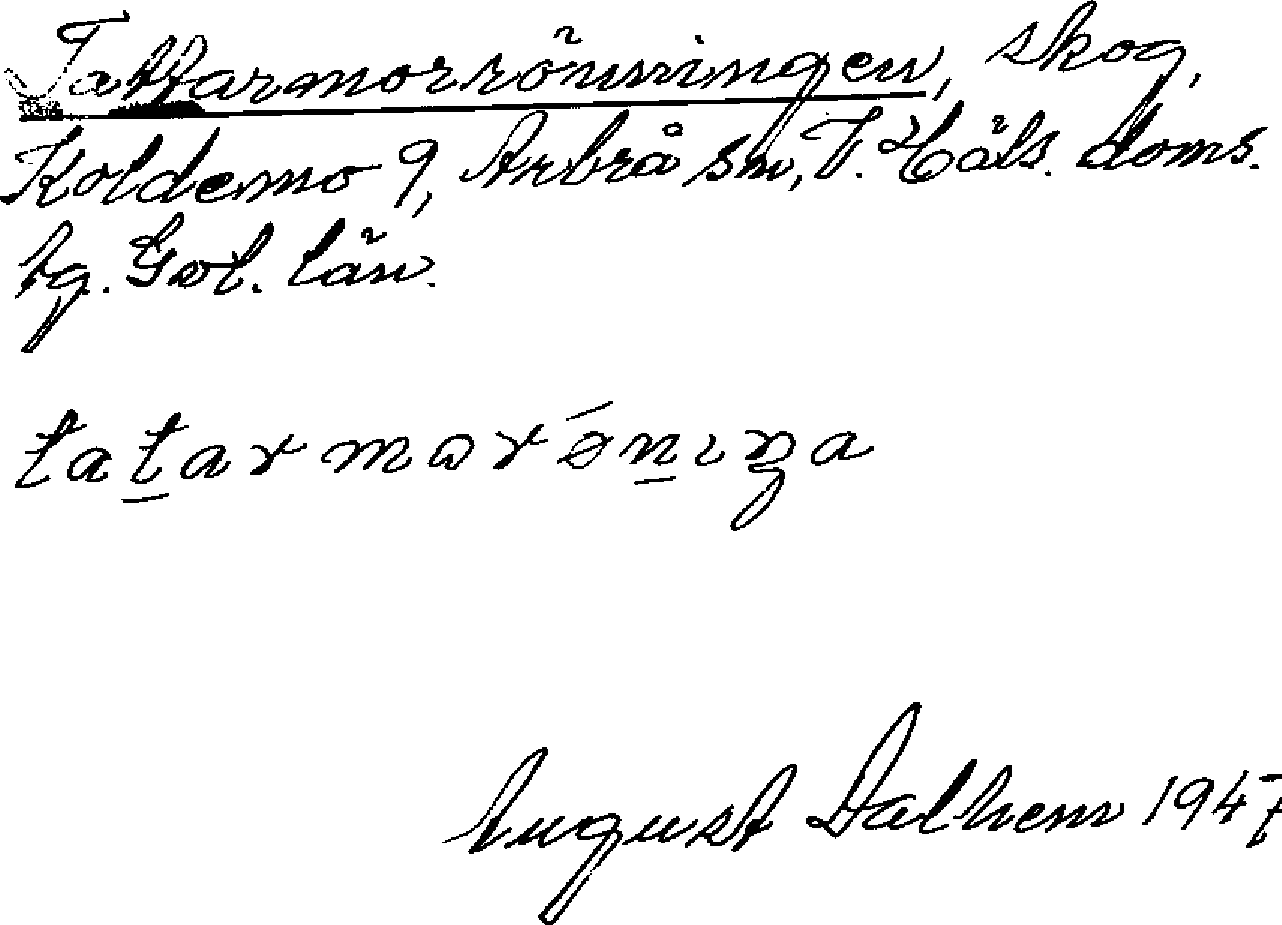 Tattarmorrönningen, skog,
Koldemo 9, Arbrå sn, V. Häls. doms.
tg. Gävl. län.
tat̲armɷrǿn̲ıŋa
August Dalhem 1947